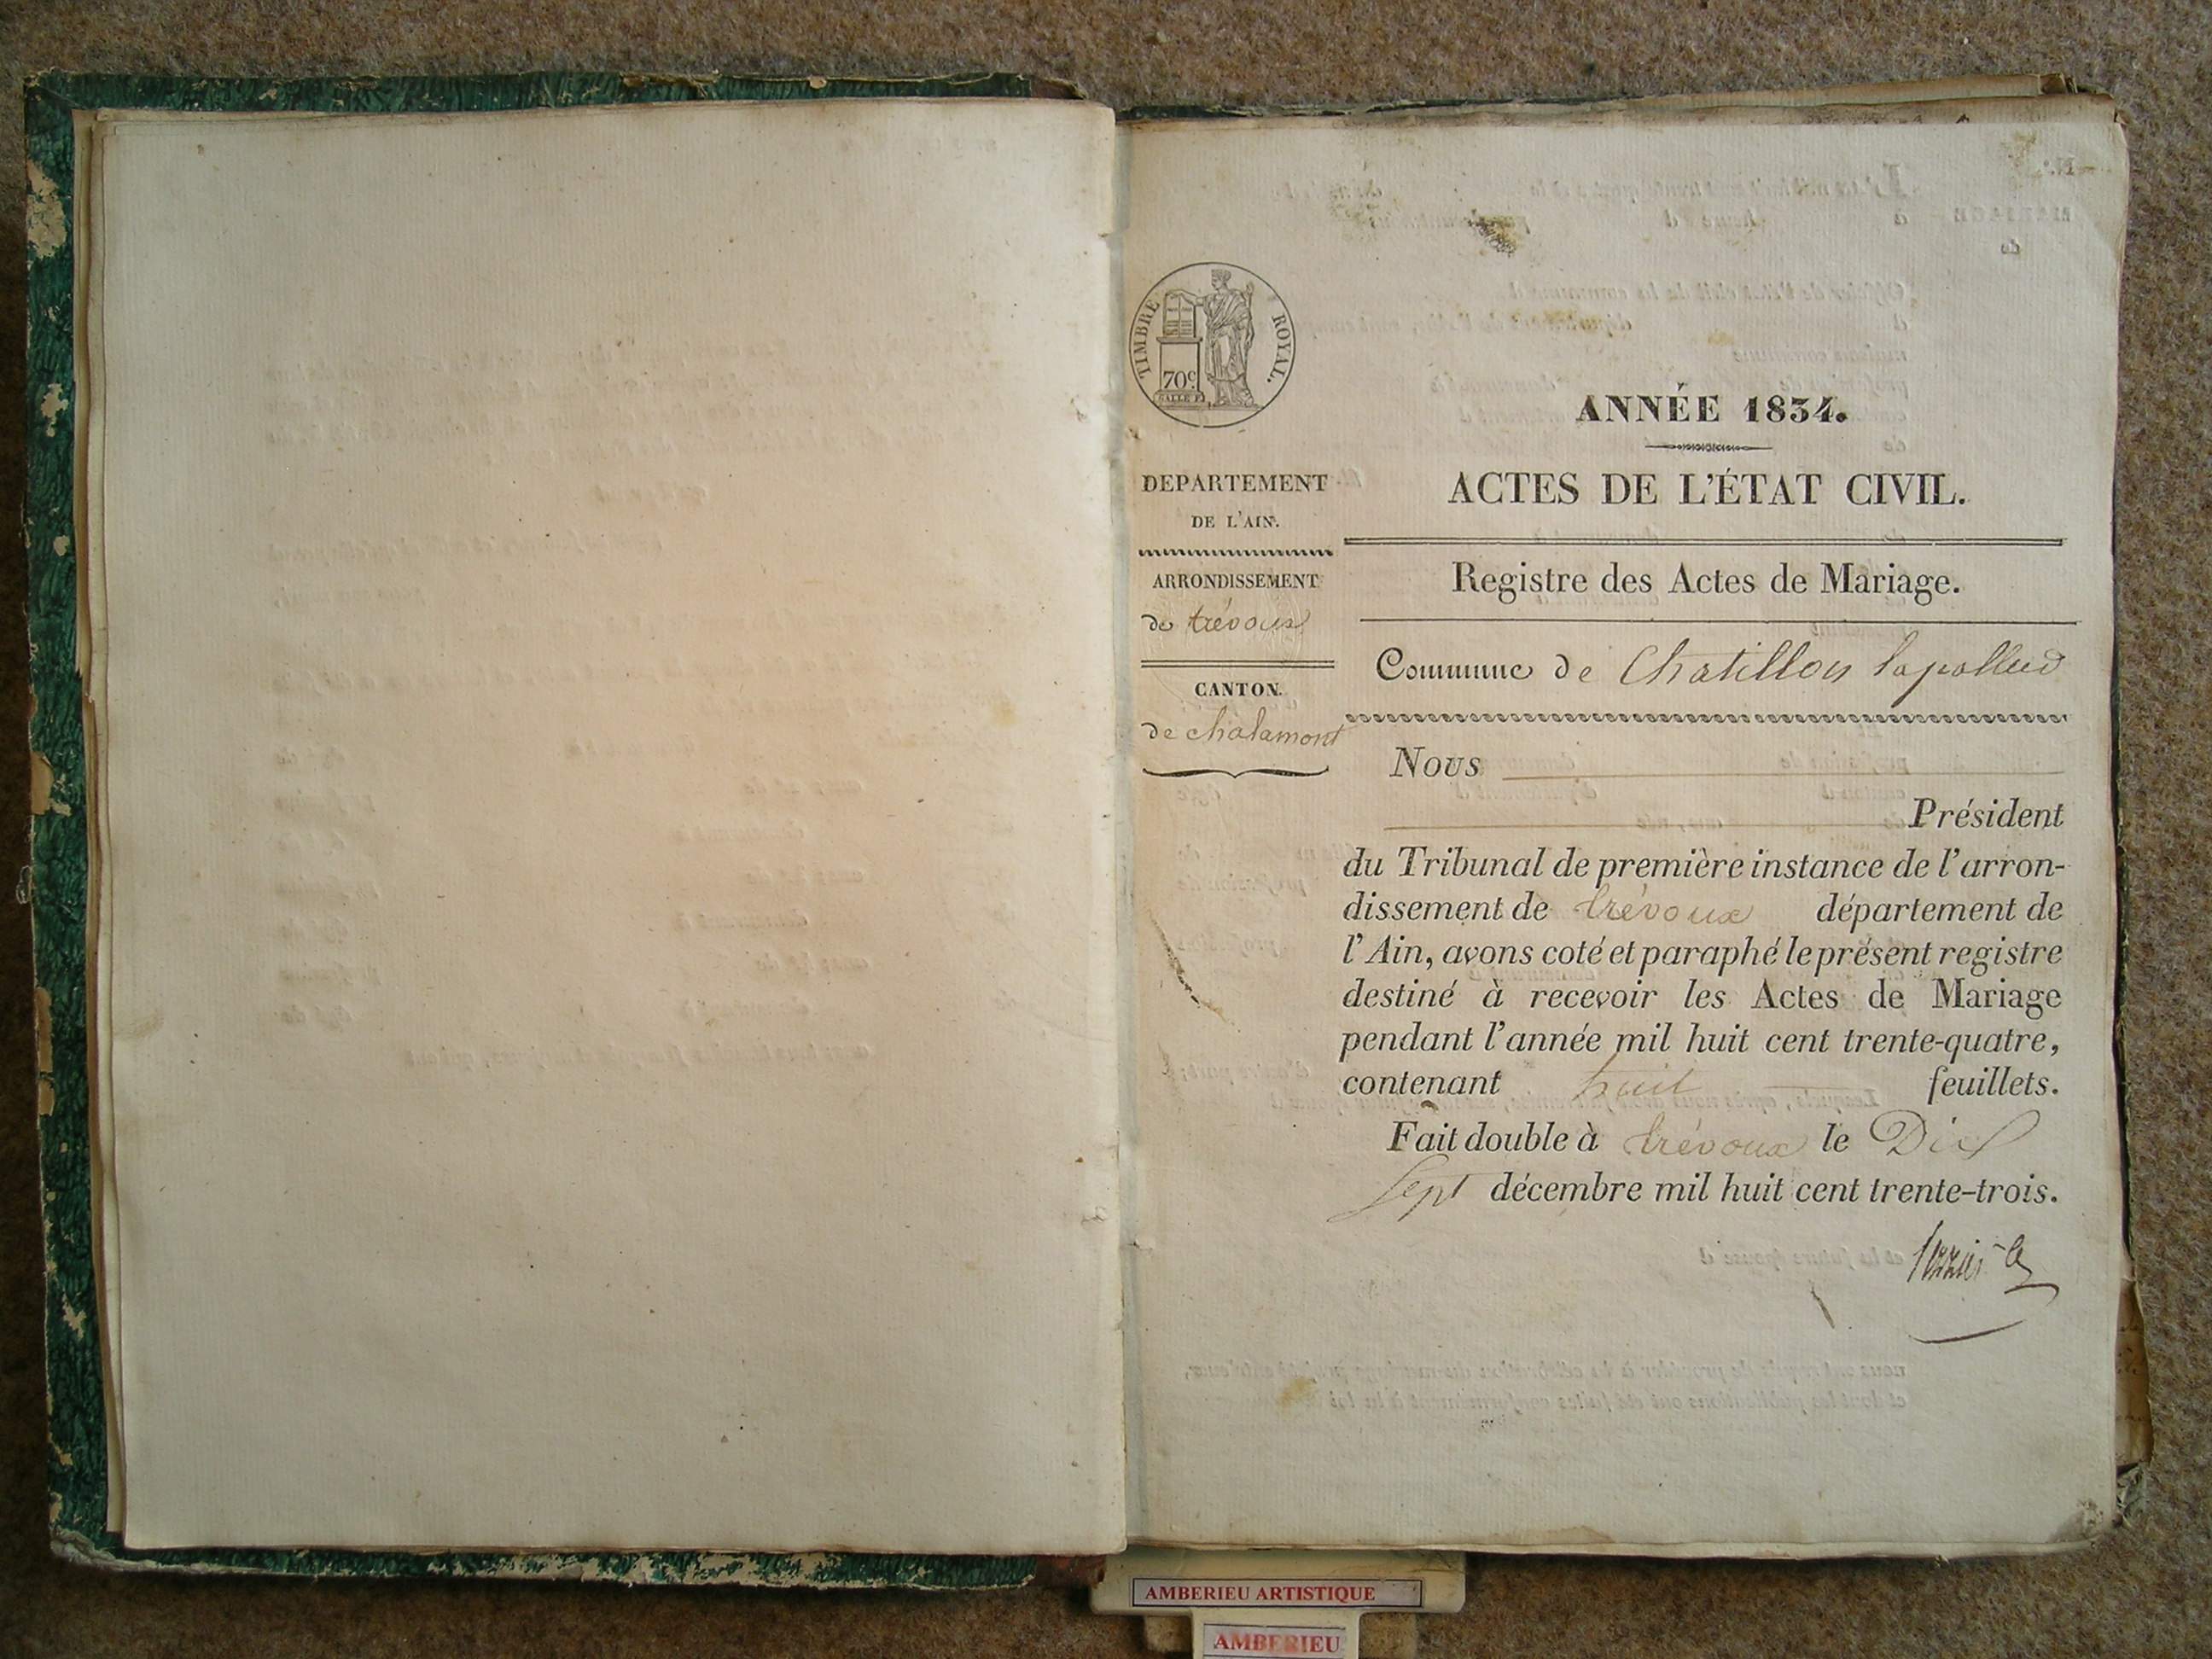 TIMBRE ROYAL.
70c
ANNÉE 1834.
ACTES DE L'ÉTAT CIVIL.
Registre des Actes de Mariage.
DEPARTEMENT
DE L'AIN.
ARRONDISSEMENT
de trévoux
CANTON.
de chalamont
Commune de Chatillon lapallud
Nous
Président
du Tribunal de première instance de l'arron-
dissement de trévoux département de
l'Ain, avons coté et paraphé le présent registre
destiné à recevoir les Actes de Mariage
pendant l'année mil huit cent trente-quatre,
contenant huit feuillets.
Fait double à trévoux le Dix
Sept décembre mil huit cent trente-trois.
AMBERIEU ARTISTIQUE
AMBERIEU